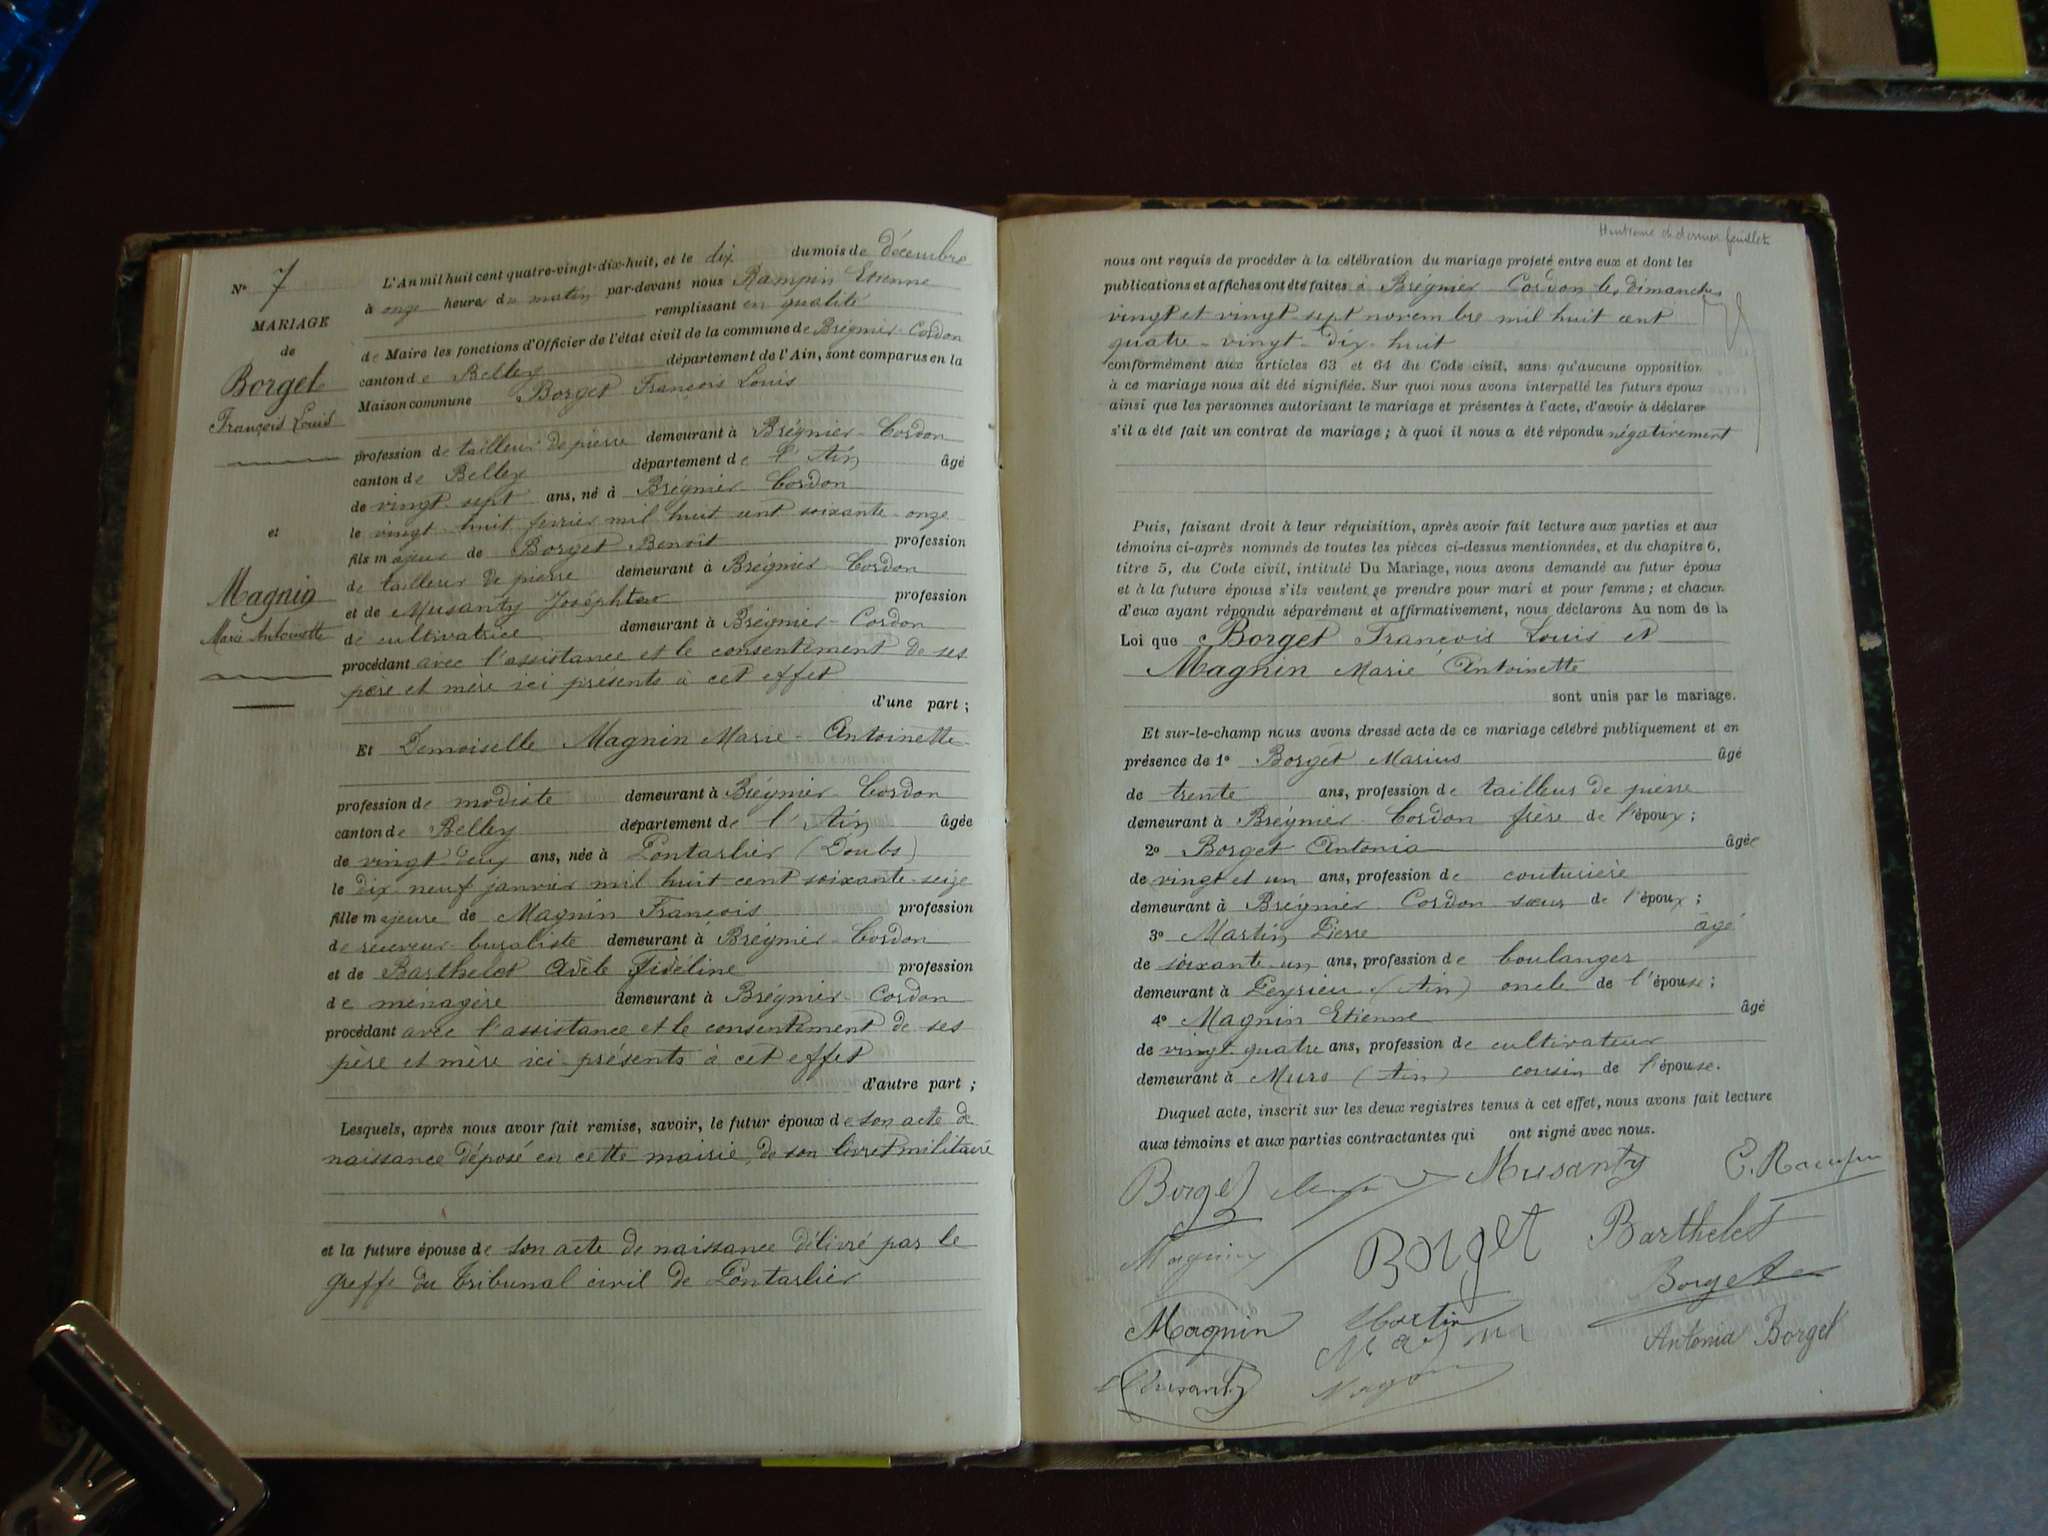 N° 7
MARIAGE
de
Borget
François Louis
et
Magnin
Marie Antoinette
L'An mil huit cent quatre-vingt-dix-huit, et le dix du mois de décembre
à onze heures du matin par-devant nous Rampin Etienne
remplissant en qualité
de Maire les fonctions d'Officier de l'état civil de la commune de Brégnier-Cordon
canton de Belley département de l'Ain, sont comparus en la
Maison commune Borget François Louis
profession de tailleur de pierre demeurant à Brégnier-Cordon
canton de Belley département de l'Ain âgé
de vingt-sept ans, né à Brégnier-Cordon
le vingt-huit février mil huit cent soixante-onze
fils majeur de Borget Benoît profession
de tailleur de pierre demeurant à Brégnier-Cordon
et de Musanty profession
de cultivatrice demeurant à Brégnier-Cordon
procédant avec l'assistance et le consentement de ses
père et mère ici présents à cet effet
d'une part ;
Et Demoiselle Magnin Marie-Antoinette
profession de modiste demeurant à Brégnier-Cordon
canton de Belley département de l'Ain âgée
de vingt-deux ans, née à Pontarlier (Doubs)
le dix-neuf janvier mil huit cent soixante-seize
fille majeure de Magnin François profession
de receveur-buraliste demeurant à Brégnier-Cordon
et de Barthelet Adèle Fidéline profession
de ménagère demeurant à Brégnier-Cordon
procédant avec l'assistance et le consentement de ses
père et mère ici présents à cet effet
d'autre part ;
Lesquels, après nous avoir fait remise, savoir, le futur époux de son acte de
naissance déposé en cette mairie, de son livret militaire
et la future épouse de son acte de naissance délivré par le
greffe du tribunal civil de Pontarlier
Huitième et dernier feuillet
nous ont requis de procéder à la célébration du mariage projeté entre eux et dont les
publications et affiches ont été faites à Brégnier-Cordon les dimanches
vingt et vingt-sept novembre mil huit cent
quatre-vingt-dix-huit
conformément aux articles 63 et 64 du Code civil, sans qu'aucune opposition
à ce mariage nous ait été signifiée. Sur quoi nous avons interpellé les futurs époux
ainsi que les personnes autorisant le mariage et présentes à l'acte, d'avoir à déclarer
s'il a été fait un contrat de mariage ; à quoi il nous a été répondu négativement
Puis, faisant droit à leur réquisition, après avoir fait lecture aux parties et aux
témoins ci-après nommés de toutes les pièces ci-dessus mentionnées, et du chapitre 6,
titre 5, du Code civil, intitulé Du Mariage, nous avons demandé au futur époux
et à la future épouse s'ils veulent se prendre pour mari et pour femme ; et chacun
d'eux ayant répondu séparément et affirmativement, nous déclarons Au nom de la
Loi que Borget François Louis et
Magnin Marie Antoinette
sont unis par le mariage.
Et sur-le-champ nous avons dressé acte de ce mariage célébré publiquement et en
présence de 1° Borget Marius âgé
de trente ans, profession de tailleur de pierre
demeurant à Brégnier-Cordon frère de l'époux ;
2° Borget Antonia âgée
de vingt et un ans, profession de couturière
demeurant à Brégnier-Cordon sœur de l'époux ;
3° Martin Pierre âgé
de soixante-un ans, profession de boulanger
demeurant à Peyrieu (Ain) oncle de l'épouse ;
4° Magnin Etienne âgé
de vingt-quatre ans, profession de cultivateur
demeurant à Murs (Ain) cousin de l'épouse.
Duquel acte, inscrit sur les deux registres tenus à cet effet, nous avons fait lecture
aux témoins et aux parties contractantes qui ont signé avec nous.
Borget Musanty E. Rampin
Magnin Borget Barthelet
Borget
Magnin Martin
Antonia Borget
Musanty